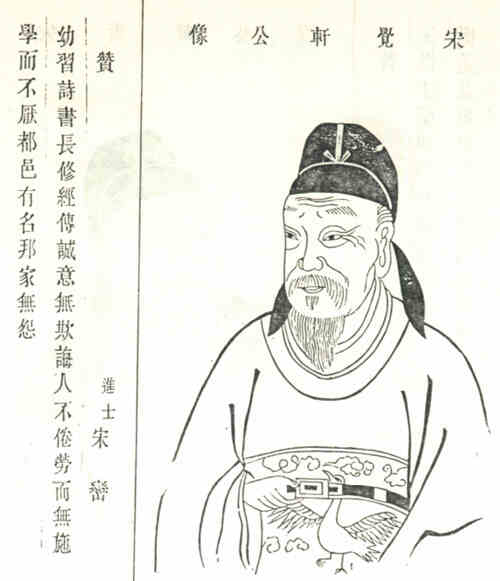 宋覺軒公像
贊
進士宋巒
幼習詩書長修經傳誠意無欺誨人不倦勞而無施
學而不厭都邑有名邦家無怨